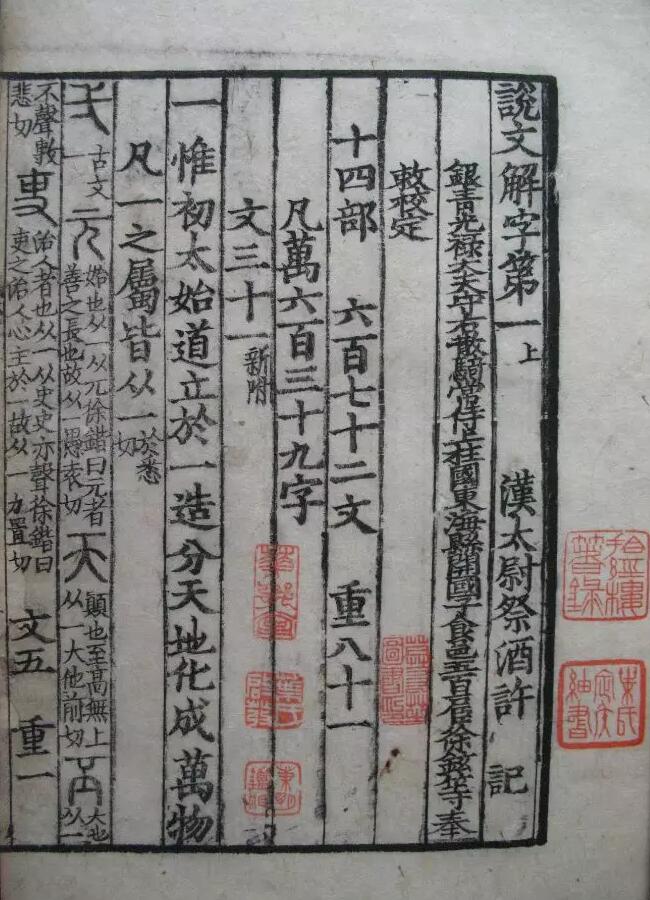 說文解字第一上 漢太尉祭酒許 記
銀青光祿大夫守右散騎常侍上柱國東海縣開國子食邑五百戶徐鉉等奉
敕校定
十四部 六百七十二文 重八十一
凡萬六百三十九字
文三十一新附
一 惟初太始道立於一造分天地化成萬物
凡一之屬皆从一於悉切
弌古文一 元始也从一从兀徐鍇曰元者善之長也故从一愚袁切 天顛也至高無上从一大他前切 丕大也从一
不聲敷悲切 吏治人者也从一从史史亦聲徐鍇曰吏之治人心主於一故从一力置切 文五 重一
拾經樓著錄